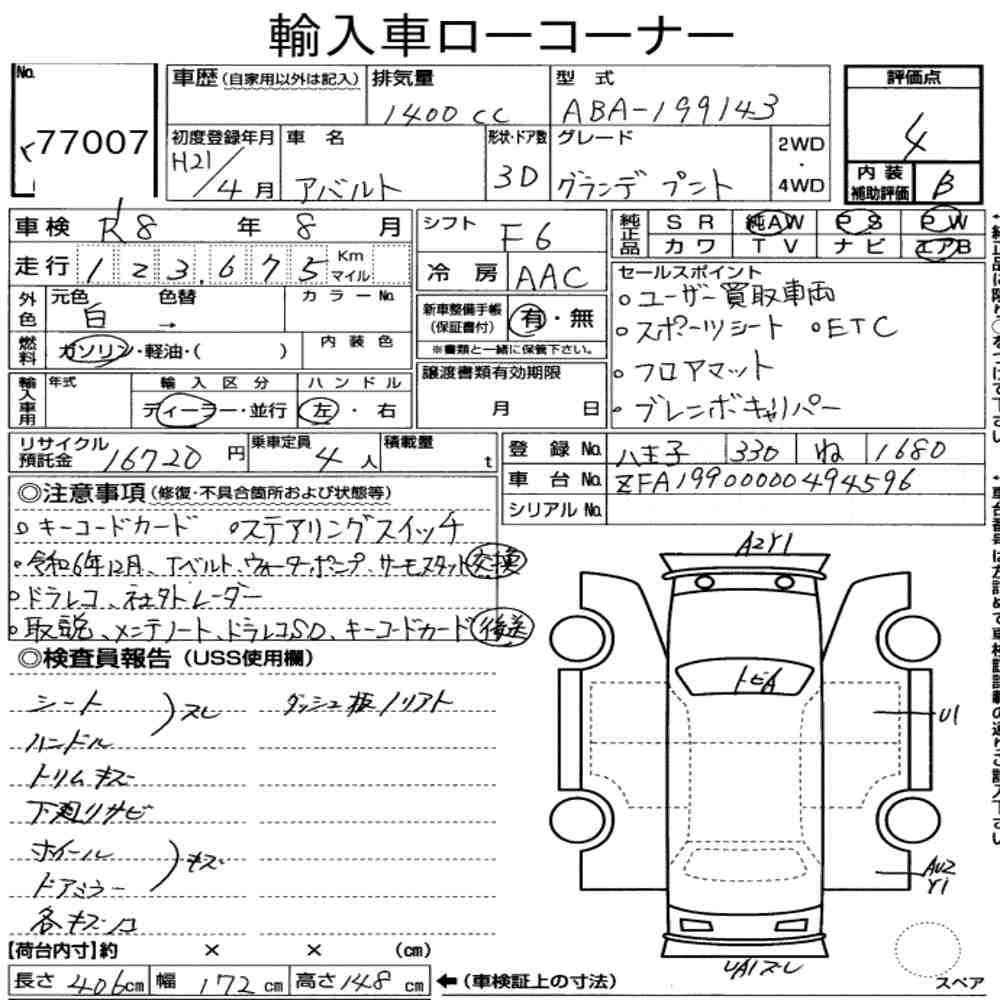 輸入車ローコーナー
No. 77007
車歴 (自家用以外は記入)
排気量 1400cc
型式 ABA-199143
評価点 4
内装補助評価 B
初度登録年月 H21/4月
車名 アバルト
形状・ドア数 3D
グレード グランデ プント
2WD・4WD
車検 R8年 8月
シフト F6
純正品 SR 純AW PS PW
カワ TV ナビ エアB
走行 123,675 Km マイル
冷房 AAC
外色 元色 白 色替 → カラーNo.
新車整備手帳(保証書付) 有・無
※書類と一緒に保管下さい。
燃料 ガソリン・軽油・( ) 内装色
譲渡書類有効期限 月 日
輸入車用 年式 輸入区分 ディーラー・並行 ハンドル 左・右
セールスポイント
○ユーザー買取車両
○スポーツシート ○ETC
○フロアマット
○ブレンボキャリパー
リサイクル預託金 16720円
乗車定員 4人
積載量 t
登録No. 八王子 330 ね 1680
車台No. ZFA19900000494596
シリアルNo.
◎注意事項 (修復・不具合箇所および状態等)
○キーコードカード ○ステアリングスイッチ
○令和6年12月、Tベルト、ウォーターポンプ、サーモスタット交換
○ドラレコ、社外レーダー
○取説、メンテノート、ドラレコSD、キーコードカード後送
◎検査員報告 (USS使用欄)
シート
ハンドル )スレ
ダッシュ板ノリアト
トリムキズ
下廻りサビ
ホイール
ドアミラー )キズ
各キズ凹
A2Y1
トビA
U1
AU2
Y1
UA1ズレ
スペア
【荷台内寸】約 × × (cm)
長さ 406cm 幅 172cm 高さ 148cm ←(車検証上の寸法)